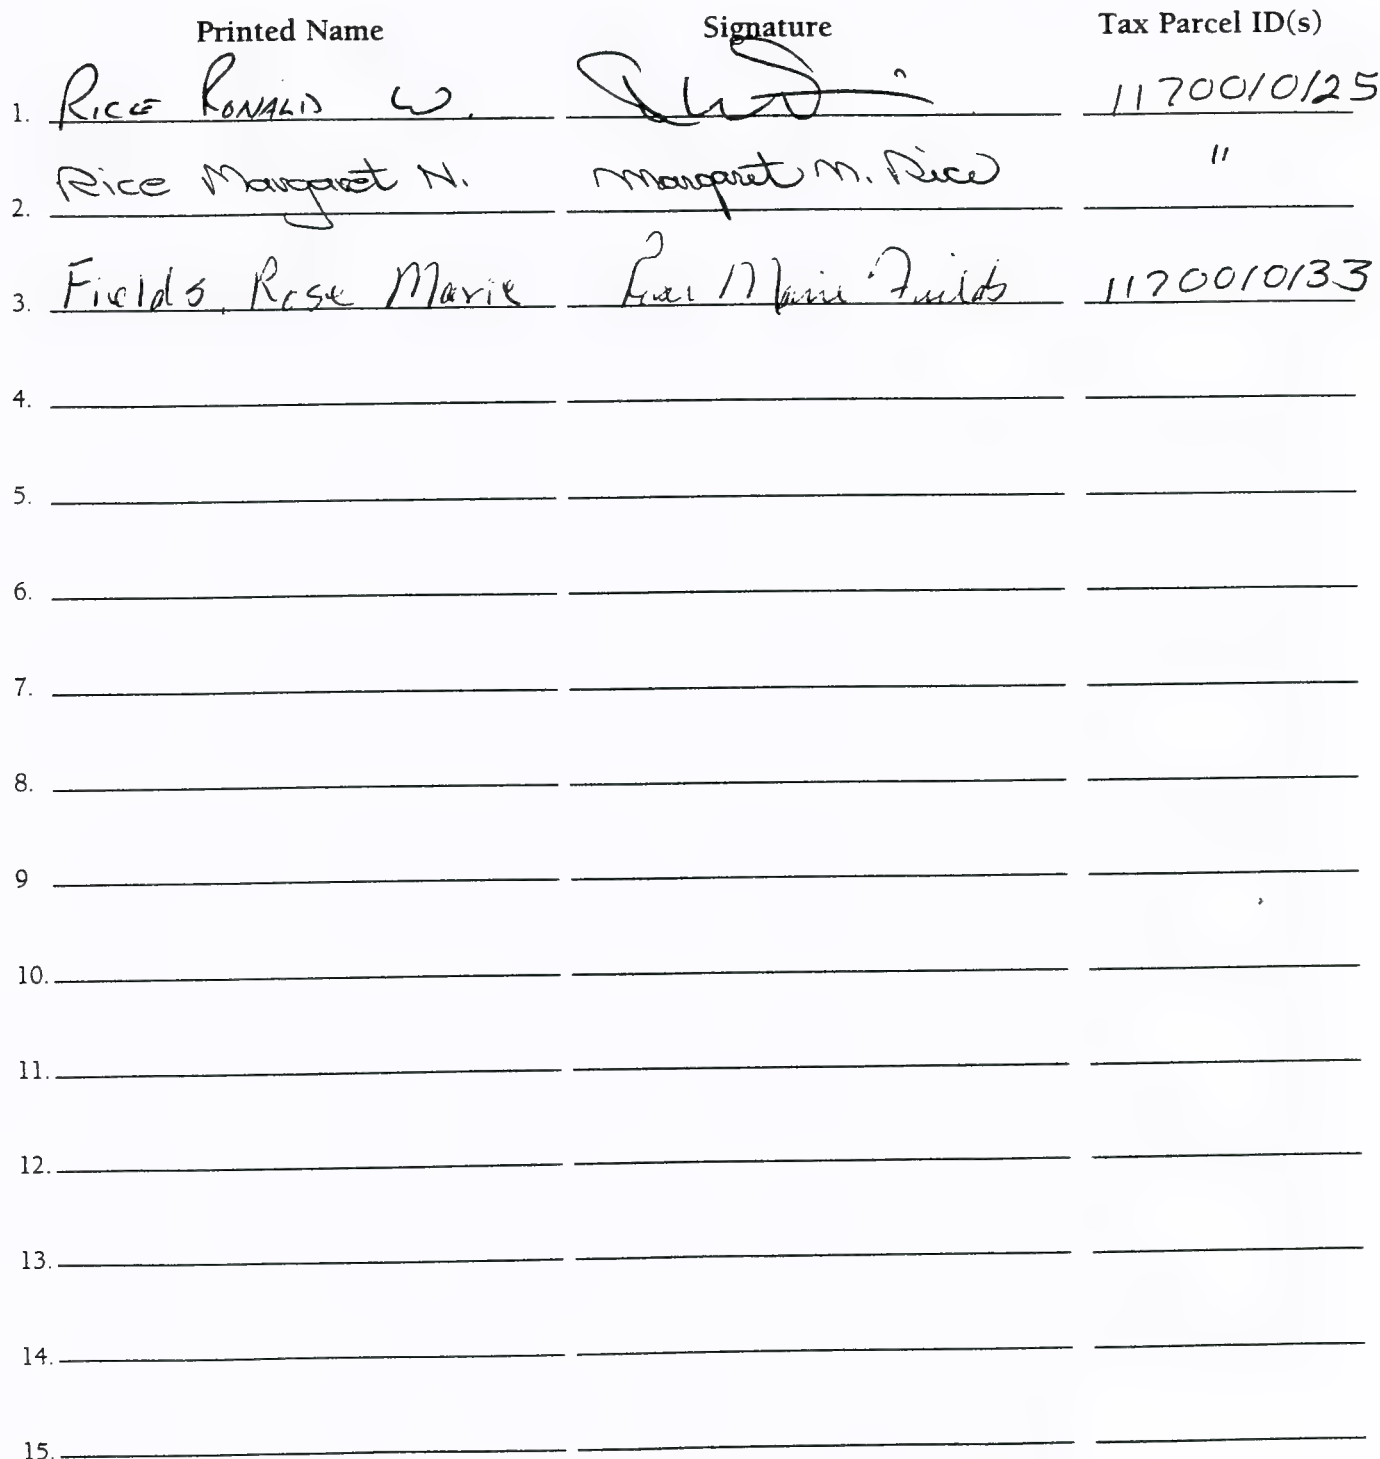 Printed Name Signature Tax Parcel ID(s)
1. RICE RONALD W. 1170010125
2. Rice Margaret N. Margaret N. Rice "
3. Fields, Rose Marie Rose Marie Fields 1170010133
4.
5.
6.
7.
8.
9
10.
11.
12.
13.
14.
15.